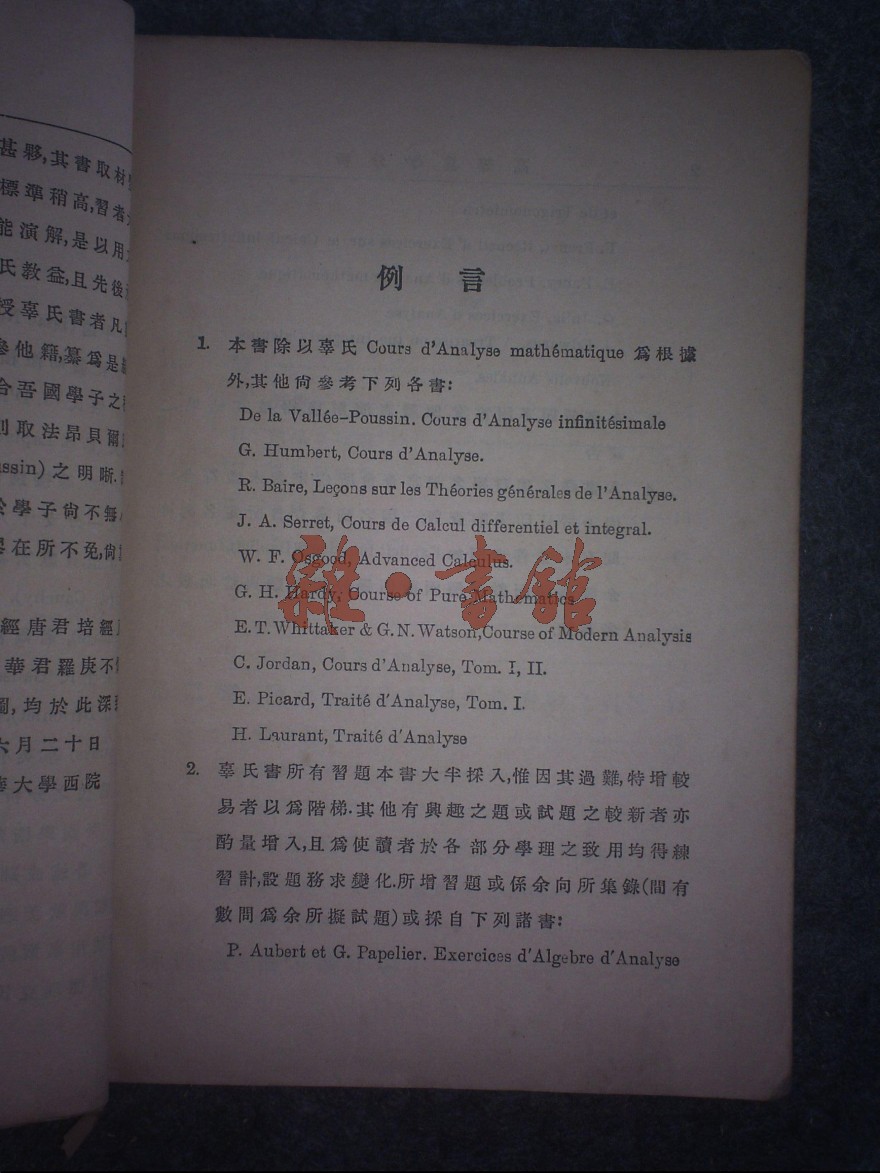 例言
1. 本書除以辜氏 Cours d'Analyse mathématique 爲根據
外,其他尙參考下列各書:
De la Vallée-Poussin. Cours d'Analyse infinitésimale
G. Humbert, Cours d'Analyse.
R. Baire, Leçons sur les Théories générales de l'Analyse.
J. A. Serret, Cours de Calcul differentiel et integral.
W. F. Osgood, Advanced Calculus.
G. H. Hardy, Course of Pure Mathematics
E. T. Whittaker & G. N. Watson, Course of Modern Analysis
C. Jordan, Cours d'Analyse, Tom. I, II.
E. Picard, Traité d'Analyse, Tom. I.
H. Laurant, Traité d'Analyse
2. 辜氏書所有習題本書大半採入,惟因其過難,特增較
易者以爲階梯.其他有興趣之題或試題之較新者亦
酌量增入,且爲使讀者於各部分學理之致用均得練
習計,設題務求變化.所增習題或係余向所集錄(間有
數問爲余所擬試題)或採自下列諸書:
P. Aubert et G. Papelier. Exercices d'Algebre d'Analyse
甚夥,其書取材
標準稍高,習者
能演解,是以用
氏教益,且先後
授辜氏書者凡
參他籍,纂爲是
合吾國學子之
則取法昂貝爾
ssin) 之明晰.
學子尙不無
在所不免,尙
經唐君培經
華君羅庚不
圖,均於此深
六月二十日
大學西院
雜·書館